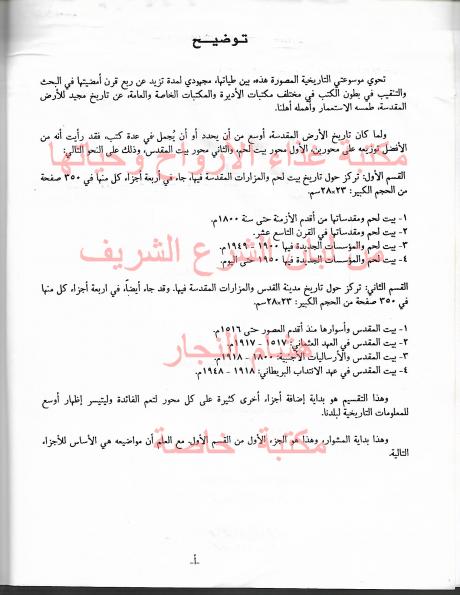 توضيح
تحوي موسوعتي التاريخية المصورة هذه، بين طياتها، مجهودي لمدة تزيد عن ربع قرن أمضيتها في البحث
والتنقيب في بطون الكتب في مختلف مكتبات الأديرة والمكتبات الخاصة والعامة، عن تاريخ مجيد للأرض
المقدسة، طمسه الاستعمار وأهمله أهلنا.
ولما كان تاريخ الأرض المقدسة، أوسع من أن يحدد أو أن يُجمل في عدة كتب، فقد رأيت أنه من
الأفضل توزيعه على محورين، الأول محور بيت لحم، والثاني محور بيت المقدس، وذلك على النحو التالي:
مكتبة غذاء الأرواح وحياتها
القسم الأول: تركز حول تاريخ بيت لحم والمزارات المقدسة فيها، جاء في أربعة أجزاء كل منها في ٣٥٠ صفحة
من الحجم الكبير: ٢٣×٢٨سم.
١- بيت لحم ومقدساتها من أقدم الأزمنة حتى سنة ١٨٠٠م.
٢- بيت لحم ومقدساتها في القرن التاسع عشر.
٣- بيت لحم والمؤسسات الجديدة فيها ١٩٠٠ - ١٩٤٩م.
من لبنان الشرع الشريف
٤- بيت لحم والمؤسسات الجديدة فيها ١٩٥٠ حتى اليوم.
القسم الثاني: تركز حول تاريخ مدينة القدس والمزارات المقدسة فيها. وقد جاء أيضاً، في اربعة أجزاء كل منها
في ٣٥٠ صفحة من الحجم الكبير: ٢٣×٢٨سم.
١- بيت المقدس وأسوارها منذ أقدم العصور حتى ١٥١٦م.
٢- بيت المقدس في العهد العثماني: ١٥١٧ - ١٩١٧م.
هشام النجار
٣- بيت المقدس والأرساليات الأجنبية: ١٨٠٠ - ١٩١٨م.
٤- بيت المقدس في عهد الانتداب البريطاني: ١٩١٨ - ١٩٤٨م.
وهذا التقسيم هو بداية إضافة أجزاء أخرى كثيرة على كل محور لتعم الفائدة وليتيسر إظهار أوسع
للمعلومات التاريخية لبلدنا.
وهذا بداية المشوار، وهذا هو الجزء الأول من القسم الأول مع العلم أن مواضيعه هي الأساس للأجزاء
التالية.
مكتبة خاصة
أ